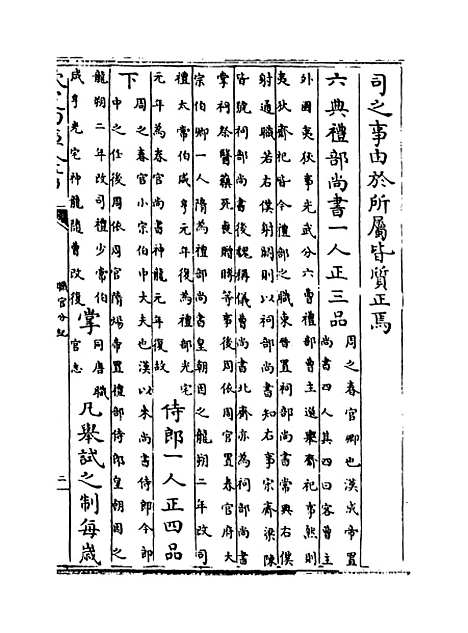 司之事由於所屬皆質正焉
六典禮部尚書一人正三品
周之春官卿也漢成帝置
尚書四人其四曰客曹主
外國夷狄事光武分六曹禮部曹主選舉齋祀事然則
夷狄齋祀皆令禮部之職東晉置祠部尚書常與右僕
射通職若右僕射闕則以祠部尚書知右事宋齊梁陳
皆號祠部尚書後魏稱儀曹尚書北齊亦為祠部尚書
掌祠祭醫藥死喪贈賻等事後周依周官置春官府大
宗伯卿一人隋為禮部尚書皇朝因之龍朔二年改司
禮太常伯咸亨元年復為禮部光宅
元年為春官尚書神龍元年復故
侍郎一人正四品
下
周之春官小宗伯中大夫也漢以来尚書侍郎今郎
中之任後周依周官隋煬帝置禮部侍郎皇朝因之
龍朔二年改司禮少常伯
咸亨光宅神龍隨曹改復
掌
同唐職
官志
凡舉試之制每歲
職官分紀
二